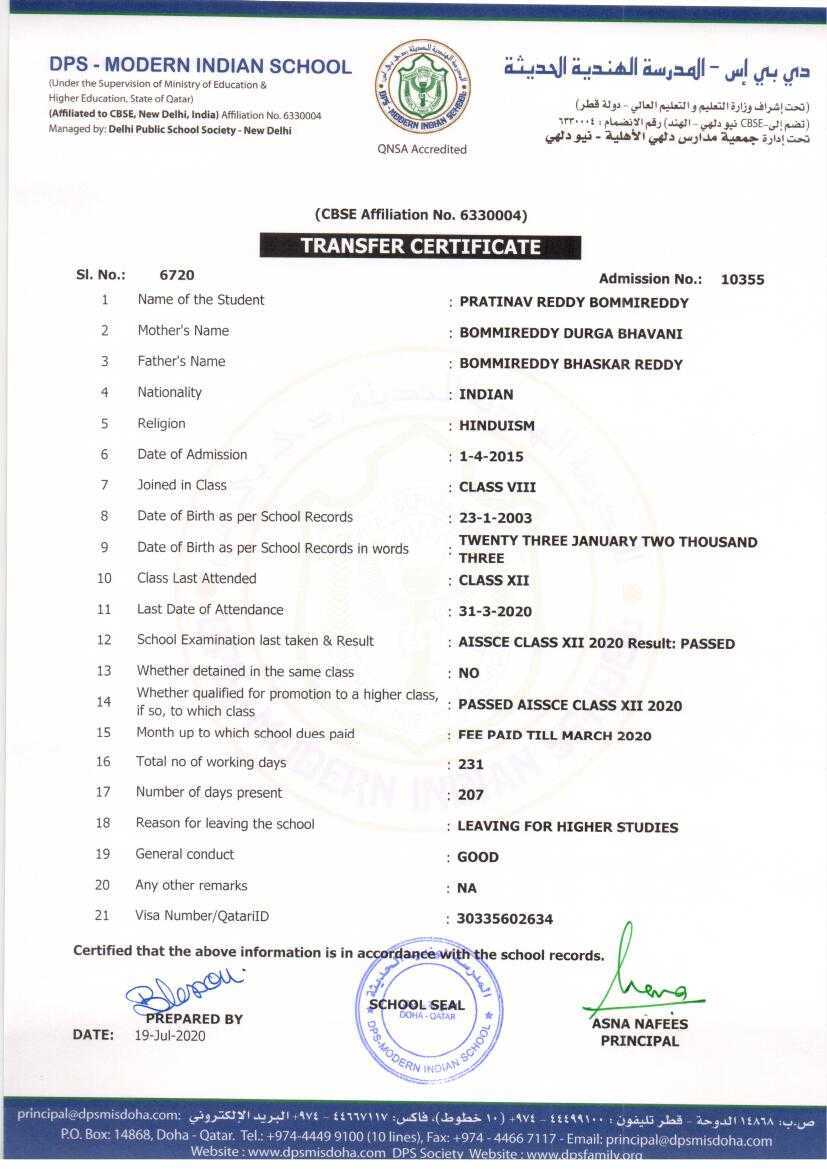 DPS - MODERN INDIAN SCHOOL
(Under the Supervision of Ministry of Education &
Higher Education, State of Qatar)
(Affiliated to CBSE, New Delhi, India) Affiliation No. 6330004
Managed by: Delhi Public School Society - New Delhi
DPS - MODERN INDIAN SCHOOL
QNSA Accredited
دي بي إس - المدرسة الهندية الحديثة
(تحت إشراف وزارة التعليم و التعليم العالي - دولة قطر)
(تضم إلى-CBSE نيو دلهي - الهند) رقم الانضمام : ٦٣٣٠٠٠٤
تحت إدارة جمعية مدارس دلهي الأهلية - نيو دلهي
(CBSE Affiliation No. 6330004)
TRANSFER CERTIFICATE
Sl. No.: 6720
Admission No.: 10355
1 Name of the Student : PRATINAV REDDY BOMMIREDDY
2 Mother's Name : BOMMIREDDY DURGA BHAVANI
3 Father's Name : BOMMIREDDY BHASKAR REDDY
4 Nationality : INDIAN
5 Religion : HINDUISM
6 Date of Admission : 1-4-2015
7 Joined in Class : CLASS VIII
8 Date of Birth as per School Records : 23-1-2003
9 Date of Birth as per School Records in words : TWENTY THREE JANUARY TWO THOUSAND
THREE
10 Class Last Attended : CLASS XII
11 Last Date of Attendance : 31-3-2020
12 School Examination last taken & Result : AISSCE CLASS XII 2020 Result: PASSED
13 Whether detained in the same class : NO
14 Whether qualified for promotion to a higher class,
if so, to which class : PASSED AISSCE CLASS XII 2020
15 Month up to which school dues paid : FEE PAID TILL MARCH 2020
16 Total no of working days : 231
17 Number of days present : 207
18 Reason for leaving the school : LEAVING FOR HIGHER STUDIES
19 General conduct : GOOD
20 Any other remarks : NA
21 Visa Number/QatariID : 30335602634
Certified that the above information is in accordance with the school records.
PREPARED BY
DATE: 19-Jul-2020
المدرسة الهندية الحديثة
SCHOOL SEAL
DOHA - QATAR
DPS-MODERN INDIAN SCHOOL
ASNA NAFEES
PRINCIPAL
ص.ب: ١٤٨٦٨ الدوحة - قطر تليفون : ٤٤٤٩٩١٠٠ - ٩٧٤+ (١٠ خطوط)، فاكس: ٤٤٦٦٧١١٧ - ٩٧٤+ البريد الإلكتروني :principal@dpsmisdoha.com
P.O. Box: 14868, Doha - Qatar. Tel.: +974-4449 9100 (10 lines), Fax: +974 - 4466 7117 - Email: principal@dpsmisdoha.com
Website : www.dpsmisdoha.com DPS Society Website : www.dpsfamily.org